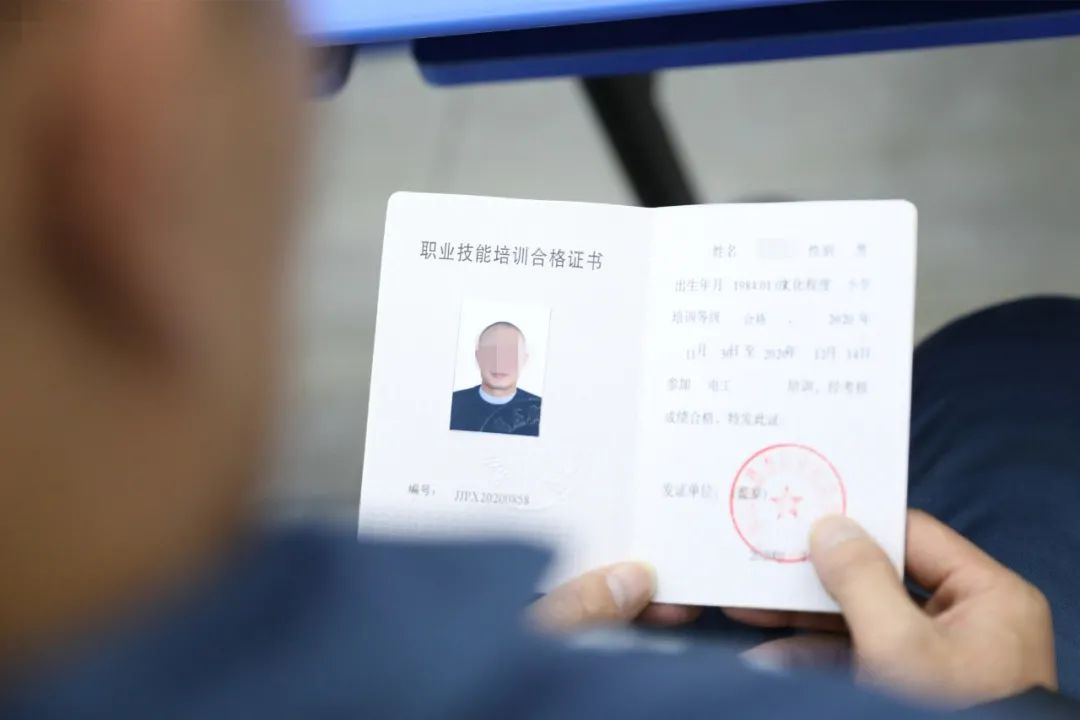 职业技能培训合格证书
编号: JJPX20200858
姓名 性别 男
出生年月 1984.01.0 文化程度 小学
培训等级 合格 . 2020 年
11月 30日 至 2020年 12月 14日
参加 电工 培训，经考核
成绩合格，特发此证
发证单位: (盖章)